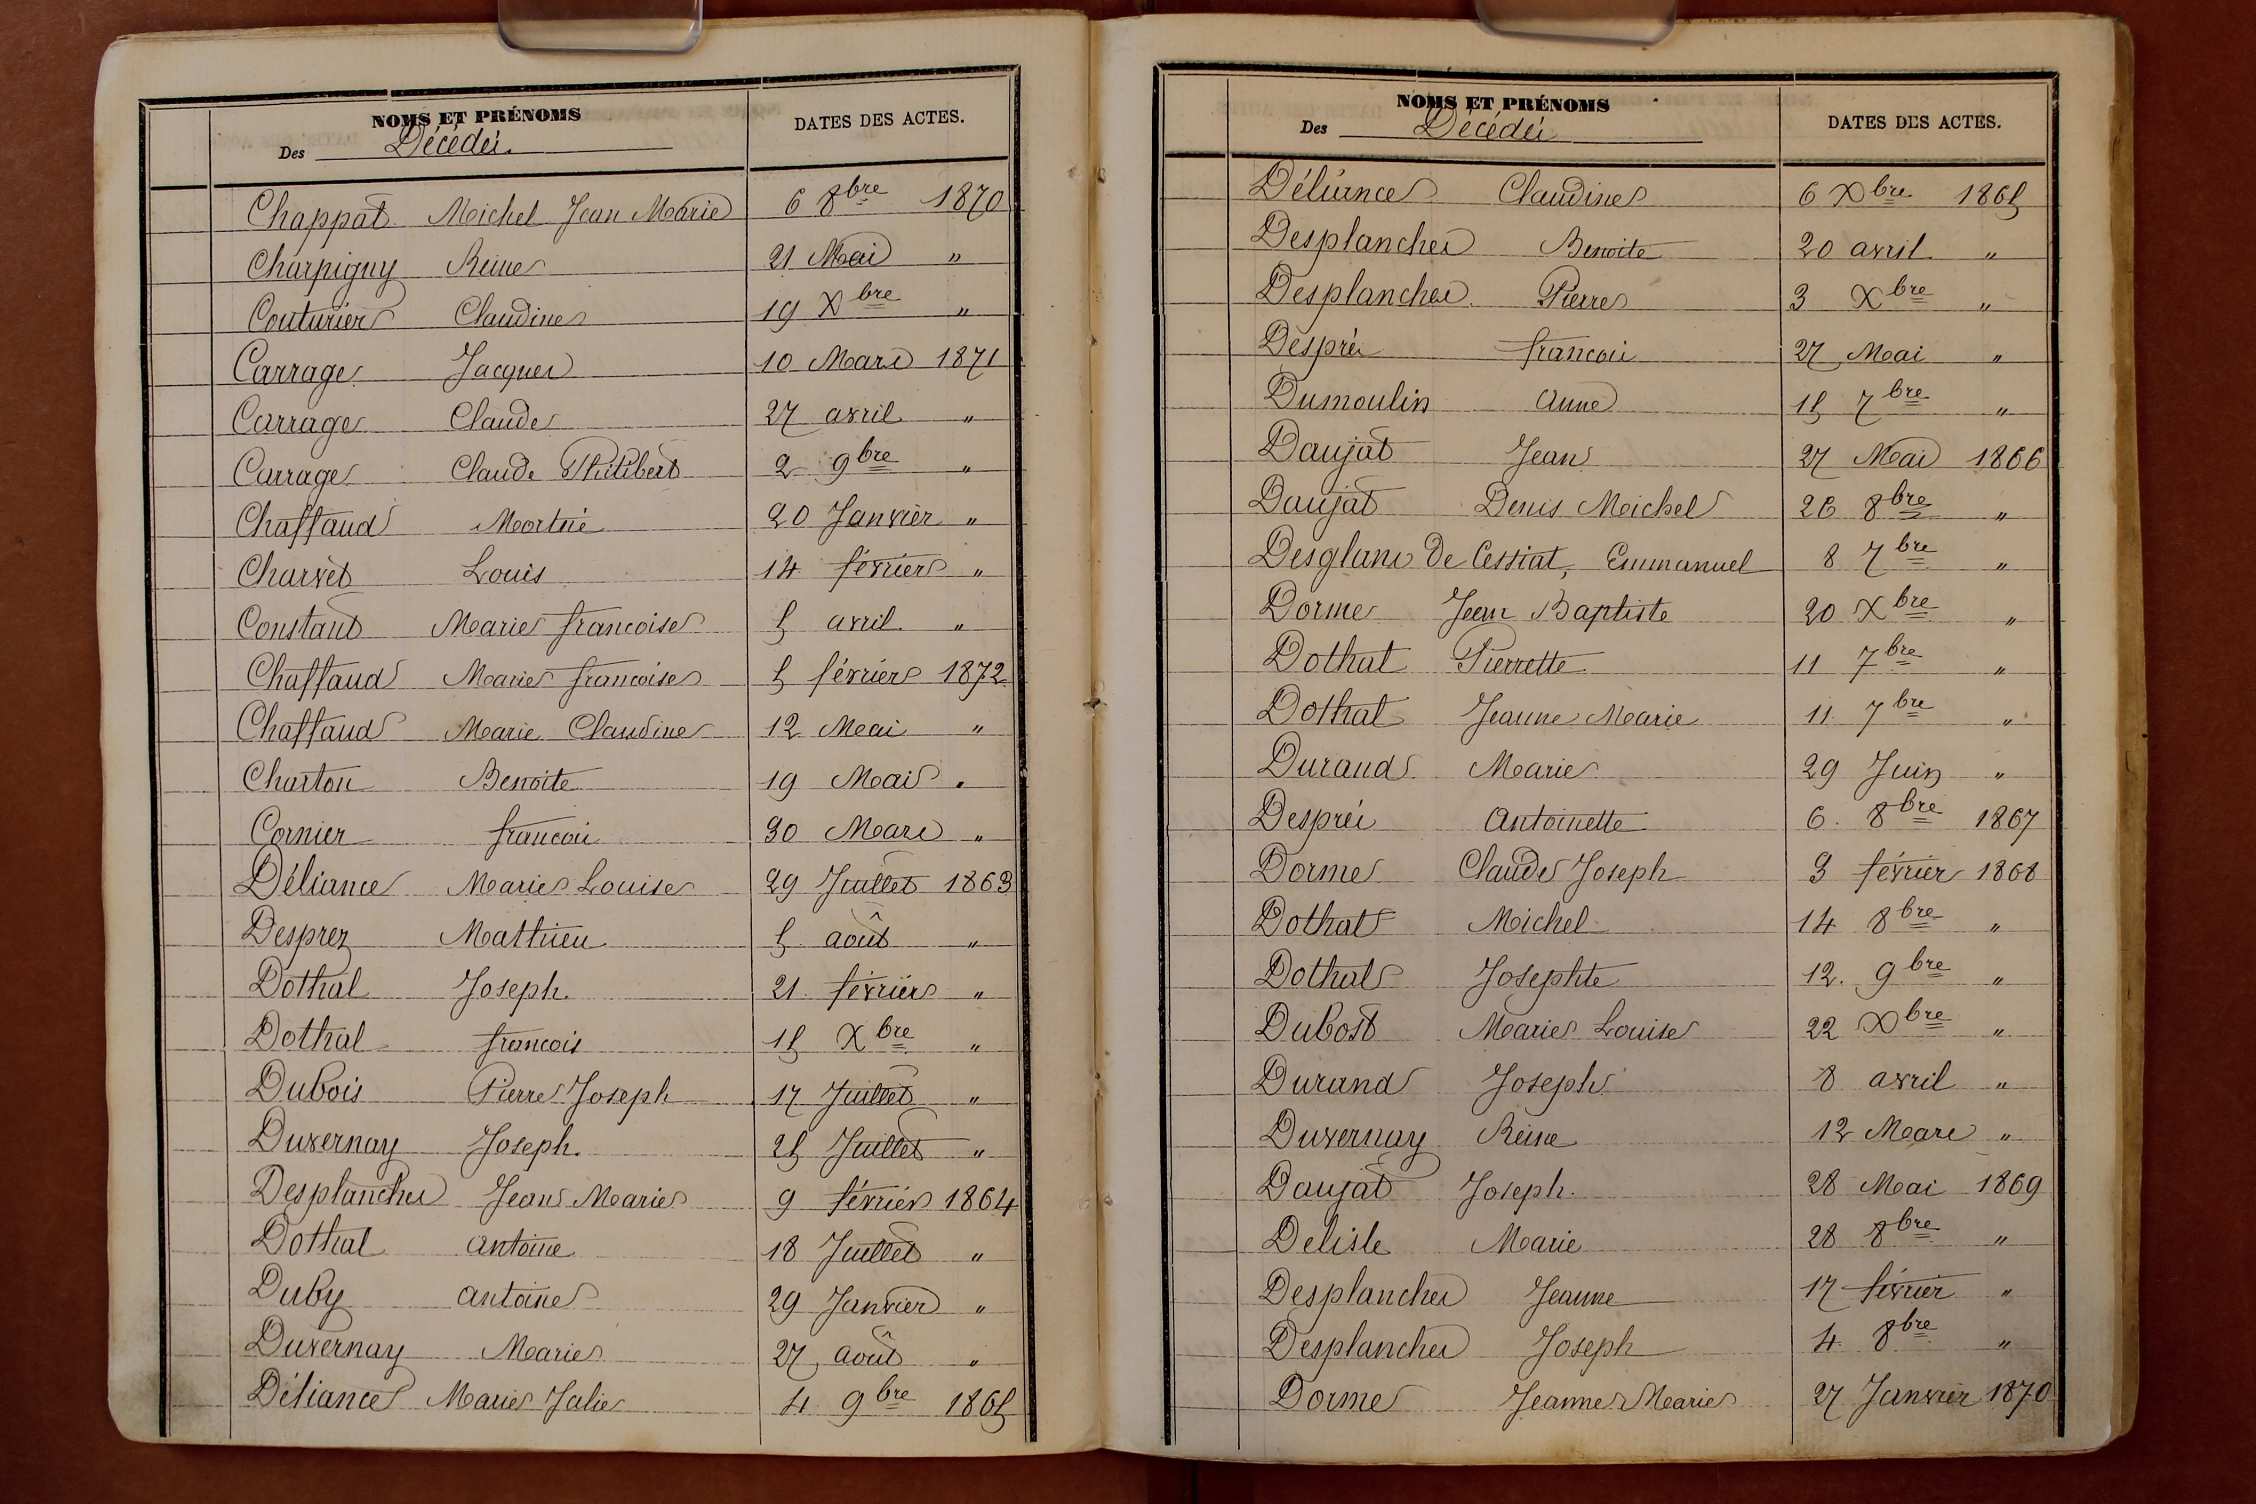 NOMS ET PRÉNOMS
Des Décédés
DATES DES ACTES.
Chappat Michel Jean Marie 6 8bre 1870
Charpigny Reine 21 Mai "
Couturier Claudine 19 Xbre "
Carrage Jacques 10 Mars 1871
Carrage Claude 27 avril "
Carrage Claude Philibert 2 9bre "
Chaffaud 20 Janvier "
Charvet Louis 14 février "
Constant Marie francoise 5 avril "
Chaffaud Marie francoise 5 février 1872
Chaffaud Marie Claudine 12 Mai "
Charton Benoite 19 Mai "
Cornier francois 30 Mars "
Déliance Marie Louise 29 Juillet 1863
Desprez Mathieu 5 août "
Dothal Joseph 21 février "
Dothal francois 15 Xbre "
Dubois Pierre Joseph 17 Juillet "
Duvernay Joseph. 25 Juillet "
Desplanches Jean Marie 9 février 1864
Dothal antoine 18 Juillet "
Duby antoine 29 Janvier "
Duvernay Marie 27 août "
Déliance Marie Julie 4 9bre 1865
NOMS ET PRÉNOMS
Des Décédés
DATES DES ACTES.
Déliance Claudine 6 Xbre 1865
Desplanches Benoite 20 avril "
Desplanches Pierre 3 Xbre "
Després francois 27 Mai "
Dumoulin anne 15 7bre "
Daujat Jean 27 Mai 1866
Daujat Denis Michel 26 8bre "
Desglans De Cessiat, Emmanuel 8 7bre "
Dorme Jean Baptiste 20 Xbre "
Dothal Pierrette 11 7bre "
Dothal Jeanne Marie 11 7bre "
Durand Marie 29 Juin "
Després antoinette 6 8bre 1867
Dorme Claude Joseph 3 février 1868
Dothal Michel 14 8bre "
Dothal Josephte 12. 9bre "
Dubost Marie Louise 22 Xbre "
Durand Joseph 8 avril "
Duvernay Reine 12 Mars "
Daujat Joseph. 28 Mai 1869
Delisle Marie 28 8bre "
Desplanches Jeanne 17 février "
Desplanches Joseph 4 8bre "
Dorme Jeanne Marie 27 Janvier 1870